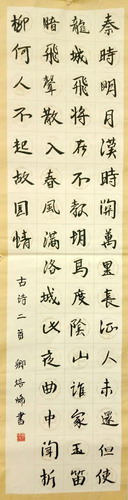 秦時明月漢時關萬里長征人未還但使
龍城飛將在不教胡馬度陰山誰家玉笛
暗飛聲散入春風滿洛城此夜曲中聞折
柳何人不起故園情
古诗二首 書